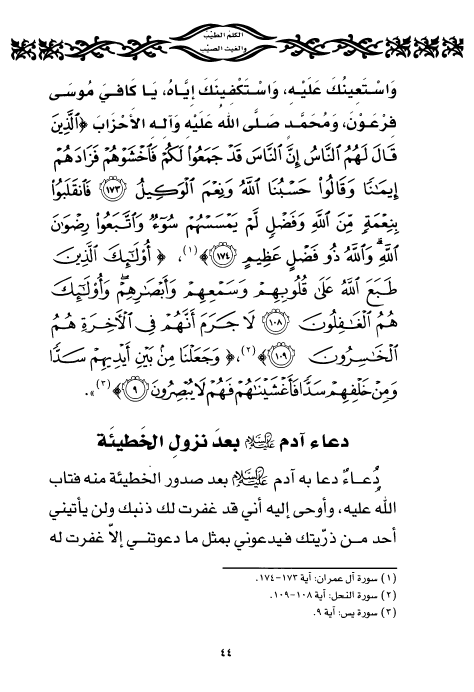 الكلم الطيّب
والغيث الصيّب
وَاسْتَعِينُكَ عَلَيْهِ، وَاسْتَكْفِينَكَ إِيَّاهُ، يَا كَافِيَ مُوسَى
فِرْعَوْنَ، وَمُحَمَّدٍ صَلَّى اللهُ عَلَيْهِ وَآلِهِ الأَحْزَابَ ﴿ٱلَّذِينَ
قَالَ لَهُمُ ٱلنَّاسُ إِنَّ ٱلنَّاسَ قَدْ جَمَعُوا۟ لَكُمْ فَٱخْشَوْهُمْ فَزَادَهُمْ
إِيمَـٰنًا وَقَالُوا۟ حَسْبُنَا ٱللَّهُ وَنِعْمَ ٱلْوَكِيلُ ﴿١٧٣﴾ فَٱنقَلَبُوا۟
بِنِعْمَةٍ مِّنَ ٱللَّهِ وَفَضْلٍ لَّمْ يَمْسَسْهُمْ سُوٓءٌ وَٱتَّبَعُوا۟ رِضْوَٰنَ
ٱللَّهِ ۗ وَٱللَّهُ ذُو فَضْلٍ عَظِيمٍ ﴿١٧٤﴾﴾(١)، ﴿أُو۟لَـٰٓئِكَ ٱلَّذِينَ
طَبَعَ ٱللَّهُ عَلَىٰ قُلُوبِهِمْ وَسَمْعِهِمْ وَأَبْصَـٰرِهِمْ ۖ وَأُو۟لَـٰٓئِكَ
هُمُ ٱلْغَـٰفِلُونَ ﴿١٠٨﴾ لَا جَرَمَ أَنَّهُمْ فِى ٱلْـَٔاخِرَةِ هُمُ
ٱلْخَـٰسِرُونَ ﴿١٠٩﴾﴾(٢)، ﴿وَجَعَلْنَا مِنۢ بَيْنِ أَيْدِيهِمْ سَدًّا
وَمِنْ خَلْفِهِمْ سَدًّا فَأَغْشَيْنَـٰهُمْ فَهُمْ لَا يُبْصِرُونَ ﴿٩﴾﴾(٣)».
دعاء آدم عليه السلام بعد نزول الخطيئة
دُعاءٌ دعا به آدم عليه السلام بعد صدور الخطيئة منه فتاب
الله عليه، وأوحى إليه أني قد غفرت لك ذنبك ولن يأتيني
أحد من ذرّيتك فيدعوني بمثل ما دعوتني إلاّ غفرت له
(١) سورة آل عمران: آية ١٧٣-١٧٤.
(٢) سورة النحل: آية ١٠٨-١٠٩.
(٣) سورة يس: آية ٩.
٤٤